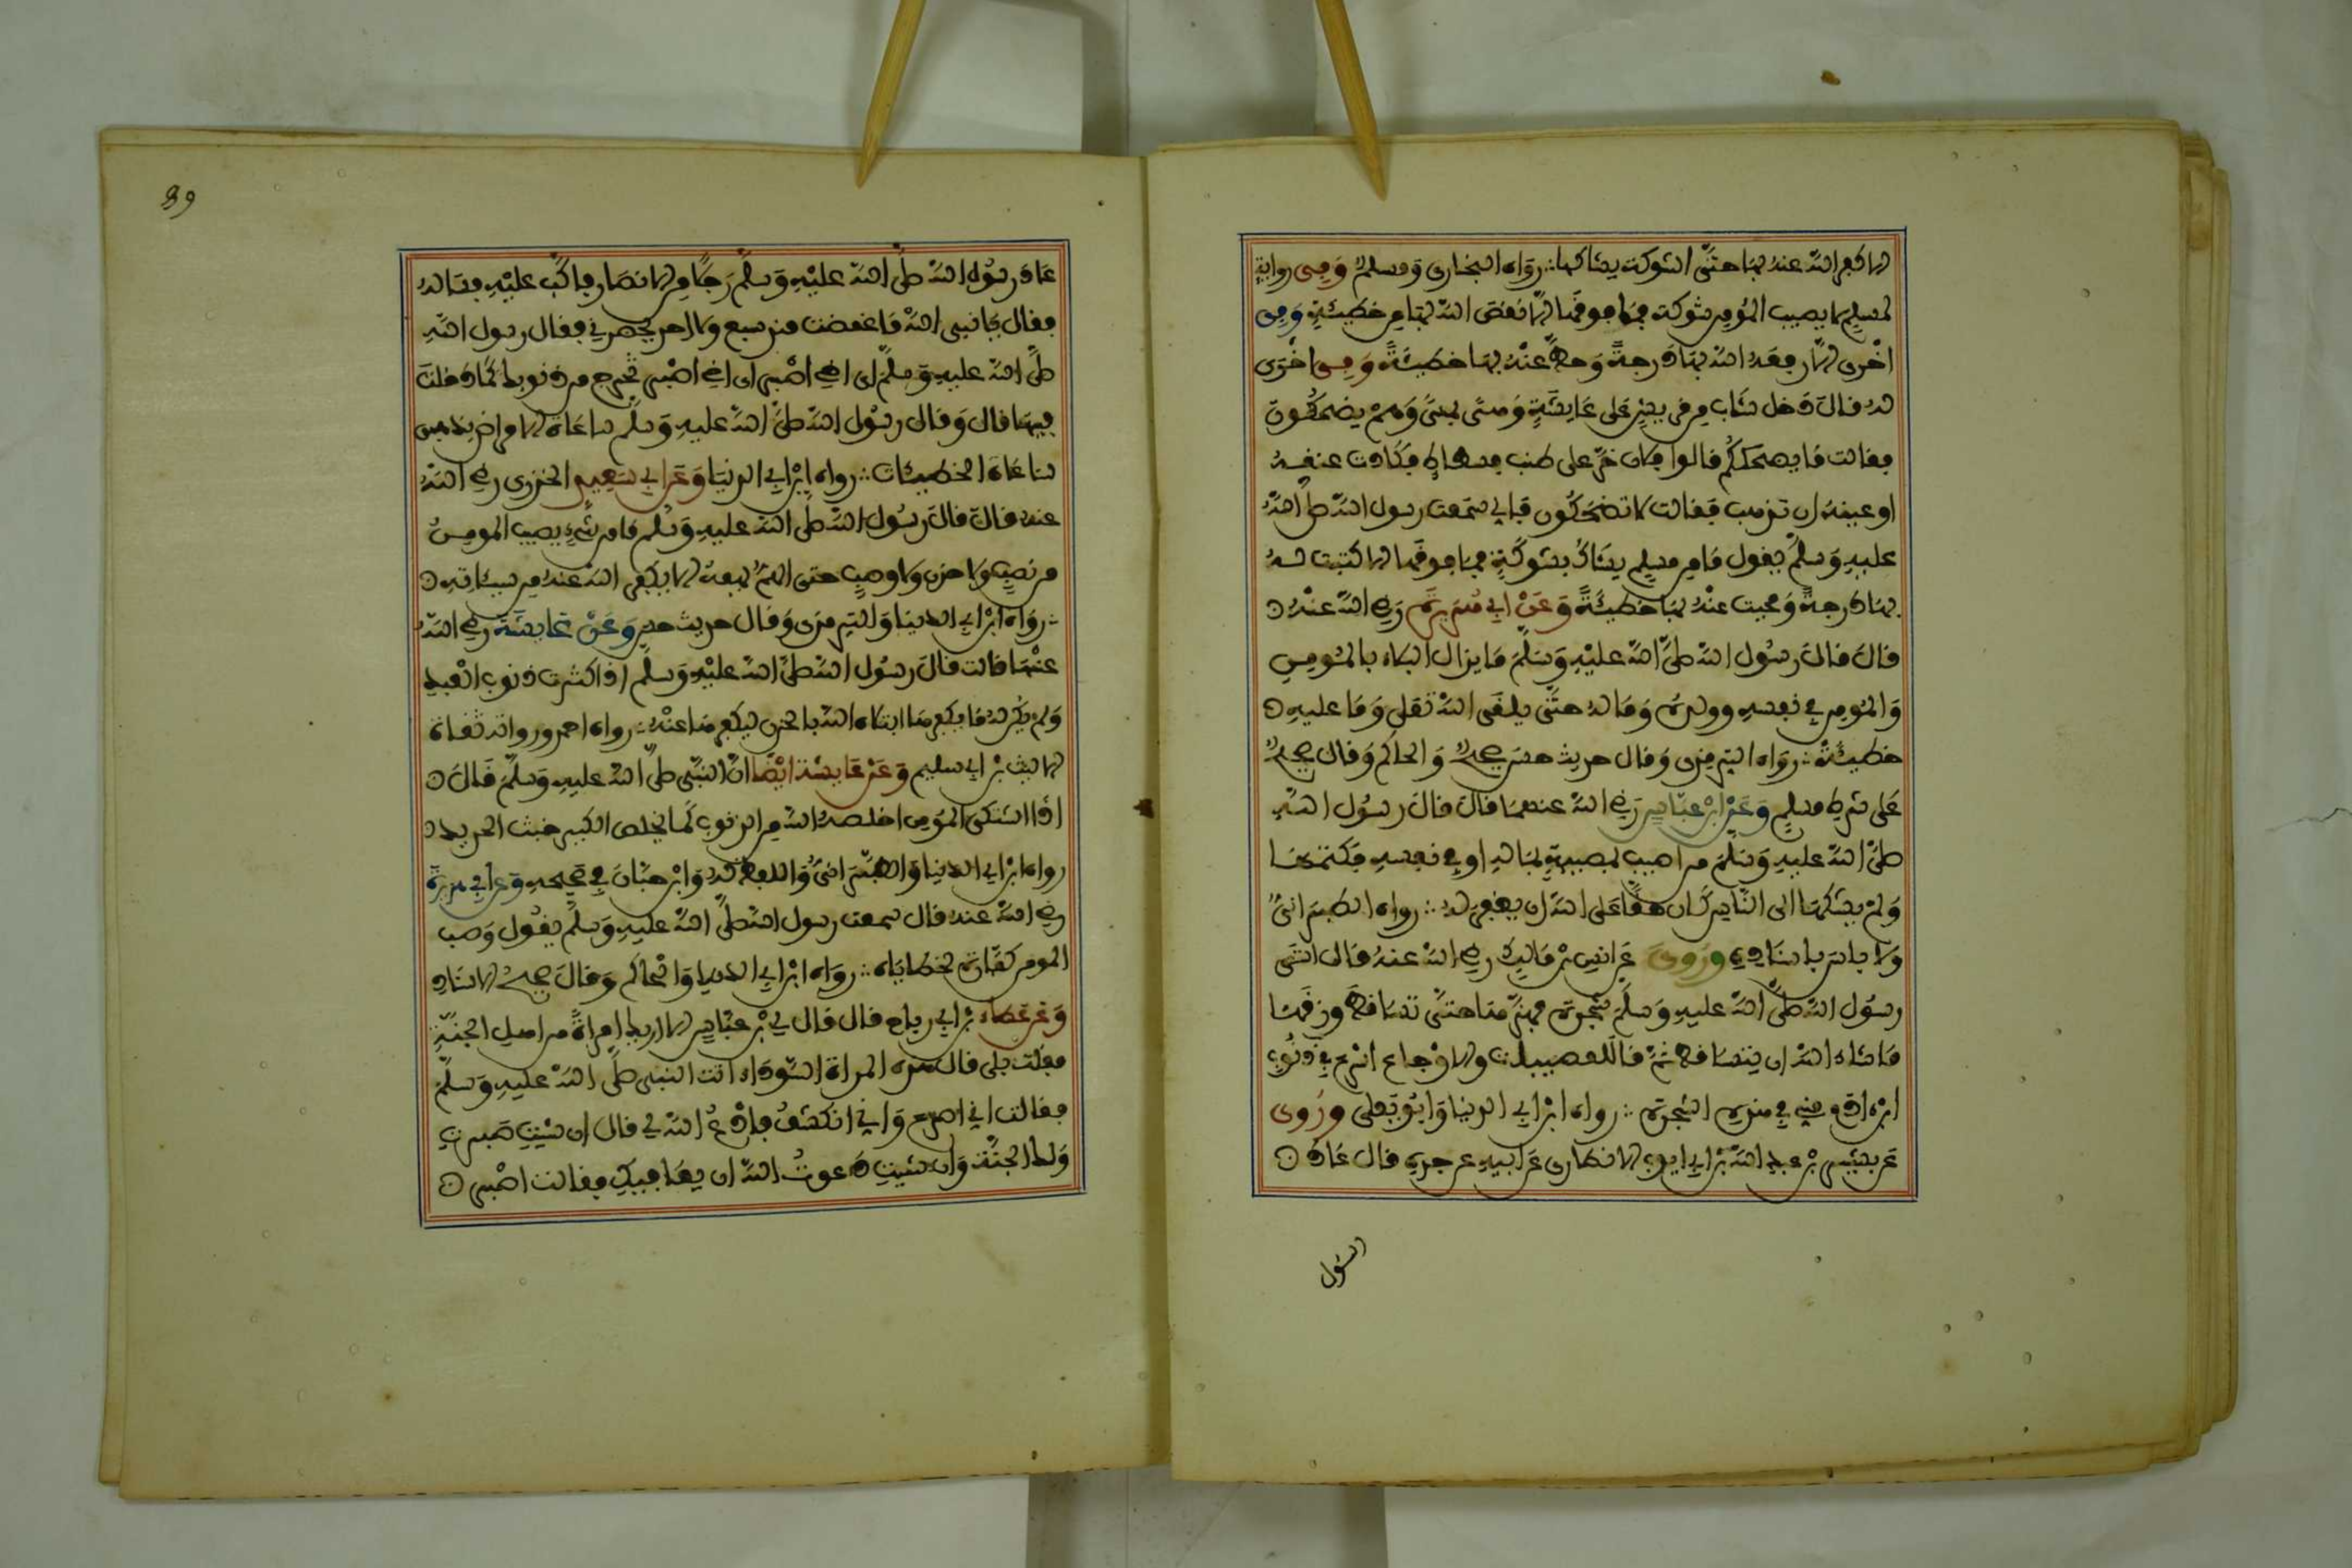 الا كفر الله عنه بها حتى الشوكة يشاكها رواه البخاري ومسلم وفي رواية
لمسلم لا يصيب المؤمن شوكة فما فوقها الا نقص الله بها من خطيئته وفي
اخرى الا رفعه الله بها درجة وحط عنه بها خطيئة وفي اخرى
له قال دخل شاب من قريش على عايشة وهي بمنى وهم يضحكون
فقالت ما يضحككم قالوا فلان خر على طنب فسطاط فكادت عنقه
او عينه ان تذهب فقالت لا تضحكوا فاني سمعت رسول الله صلى الله
عليه وسلم يقول ما من مسلم يشاك بشوكة فما فوقها الا كتبت له
بها درجة ومحيت عنه بها خطيئة وعن ابي هريرة رضي الله عنه
قال قال رسول الله صلى الله عليه وسلم ما يزال البلاء بالمومن
والمومن في نفسه وولده وماله حتى يلقى الله تعلى وما عليه
خطيئة رواه الترمذي وقال حديث حسن صحيح والحاكم وقال صحيح
على شرط مسلم وعن ابن عباس رضي الله عنهما قال قال رسول الله
صلى الله عليه وسلم من اصيب بمصيبة بماله او في نفسه فكتمها
ولم يشكها الى الناس كان حقا على الله ان يغفر له رواه الطبراني
ولا باس باسناده وروي عن انس بن مالك رضي الله عنه قال اتى
رسول الله صلى الله عليه وسلم شجرة فهزها حتى تساقط ورقها
ما شاء الله ان يتساقط ثم قال للمصيبات والاوجاع اسرع في ذنوب
ابن ادم مني في هذه الشجرة رواه ابن ابي الدنيا وابو يعلى وروي
عن بشير بن عبد الله بن ابي ايوب الانصاري عن ابيه عن جده قال عاد
رسول
89
عاد رسول الله صلى الله عليه وسلم رجلا من الانصار فاكب عليه فساله
فقال يا نبي الله ما غمضت منذ سبع ولا احد يحضرني فقال رسول الله
صلى الله عليه وسلم اي اخي اصبر اي اخي اصبر تخرج من ذنوبك كما دخلت
فيها قال وقال رسول الله صلى الله عليه وسلم ساعات الامراض يذهبن
ساعات الخطيئات رواه ابن ابي الدنيا وعن ابي سعيد الخدري رضي الله
عنه قال قال رسول الله صلى الله عليه وسلم ما من شيء يصيب المومن
من نصب ولا حزن ولا وصب حتى الهم يهمه الا يكفر الله عنه من سيئاته
رواه ابن ابي الدنيا والترمذي وقال حديث حسن وعن عايشة رضي الله
عنها قالت قال رسول الله صلى الله عليه وسلم اذا كثرت ذنوب العبد
ولم يكن له ما يكفرها ابتلاه الله بالحزن ليكفرها عنه رواه احمد ورواته ثقات
الا ليث بن ابي سليم وعن عايشة ايضا ان النبي صلى الله عليه وسلم قال
اذا اشتكى المومن اخلصه الله من الذنوب كما يخلص الكير خبث الحديد
رواه ابن ابي الدنيا والطبراني واللفظ له وابن حبان في صحيحه وعن ابي هريرة
رضي الله عنه قال سمعت رسول الله صلى الله عليه وسلم يقول وصب
المومن كفارة لخطاياه رواه ابن ابي الدنيا والحاكم وقال صحيح الاسناد
وعن عطاء بن ابي رباح قال قال لي بن عباس الا اريك امراة من اهل الجنة
فقلت بلى قال هذه المراة السوداء اتت النبي صلى الله عليه وسلم
فقالت اني اصرع واني انكشف فادع الله لي قال ان شيت صبرت
ولك الجنة وان شيت دعوت الله ان يعافيك فقالت اصبر